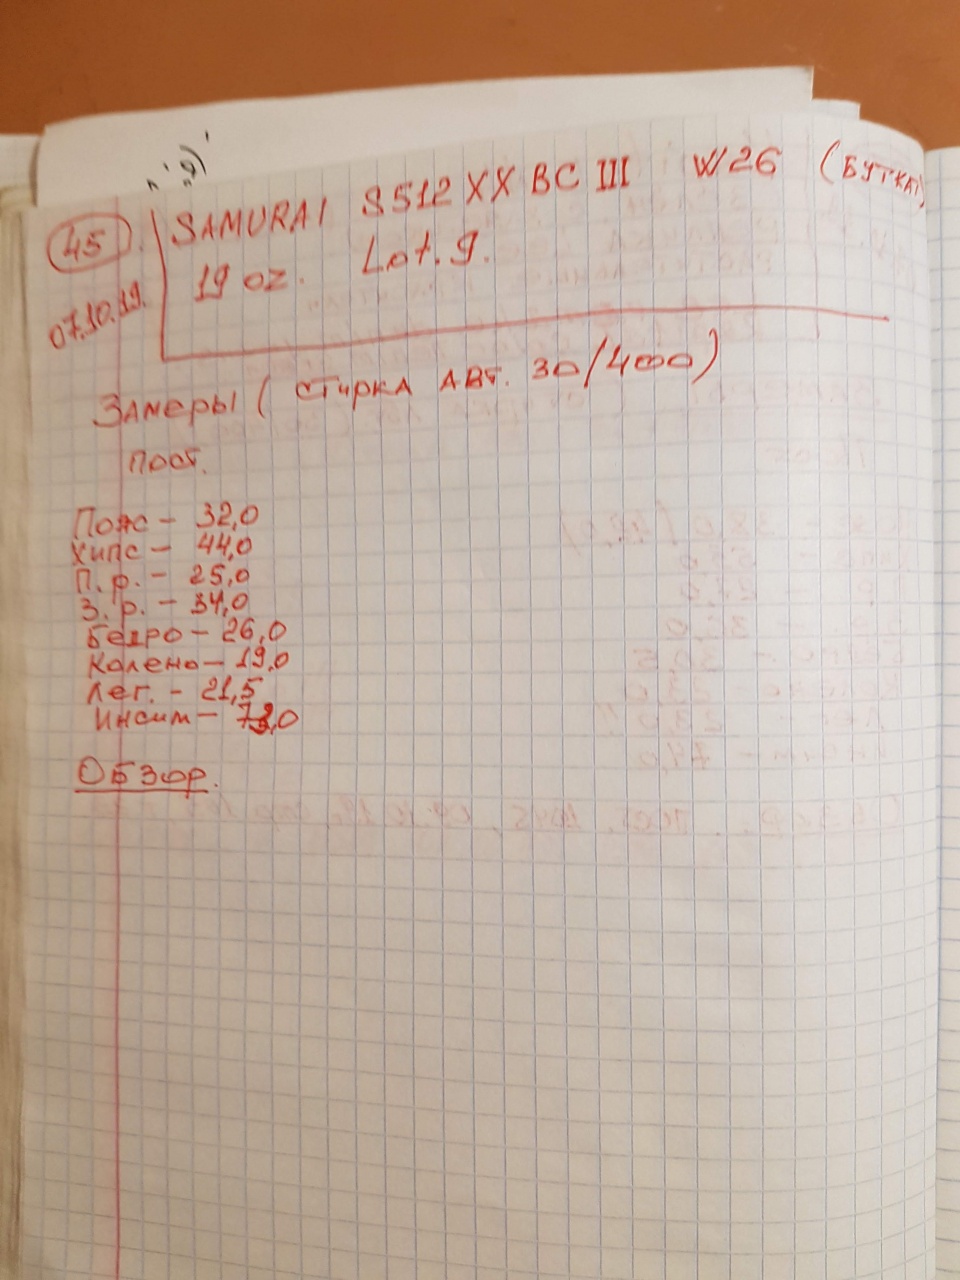 45.
07.10.19.
SAMURAI S512XX BC III W26 (БУТКАТ)
19 oz. Lot. 9.
Замеры ( стирка авт. 30/400)
пост.
Пояс – 32,0
Хипс – 44,0
П. р. – 25,0
З. р. – 34,0
Бедро – 26,0
Колено – 19,0
Лег. – 21,5
Инсим –
Обзор.